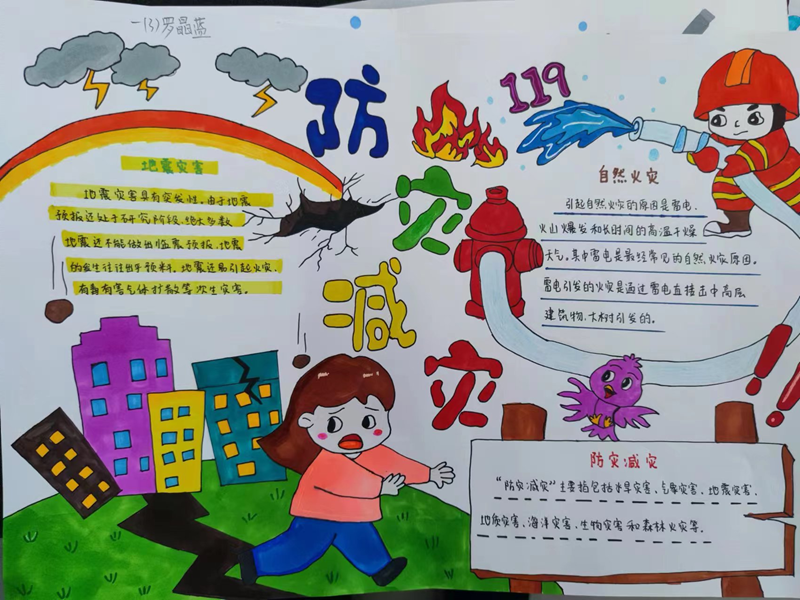 一(3)罗晶蓝
防灾减灾
119
地震灾害
地震灾害具有突发性,由于地震
预报还处于研究阶段,绝大多数
地震还不能做出临震预报,地震
的发生往往出乎预料。地震还易引起火灾,
有毒有害气体扩散等次生灾害。
自然火灾
引起自然火灾的原因是雷电,
火山爆发和长时间的高温干燥
天气。其中雷电是最经常见的自然火灾原因。
雷电引发的火灾是通过雷电直接击中高层
建筑物、大树引发的。
防灾减灾
"防灾减灾"主要指包括水旱灾害、气象灾害、地震灾害、
地质灾害、海洋灾害、生物灾害和森林火灾等。